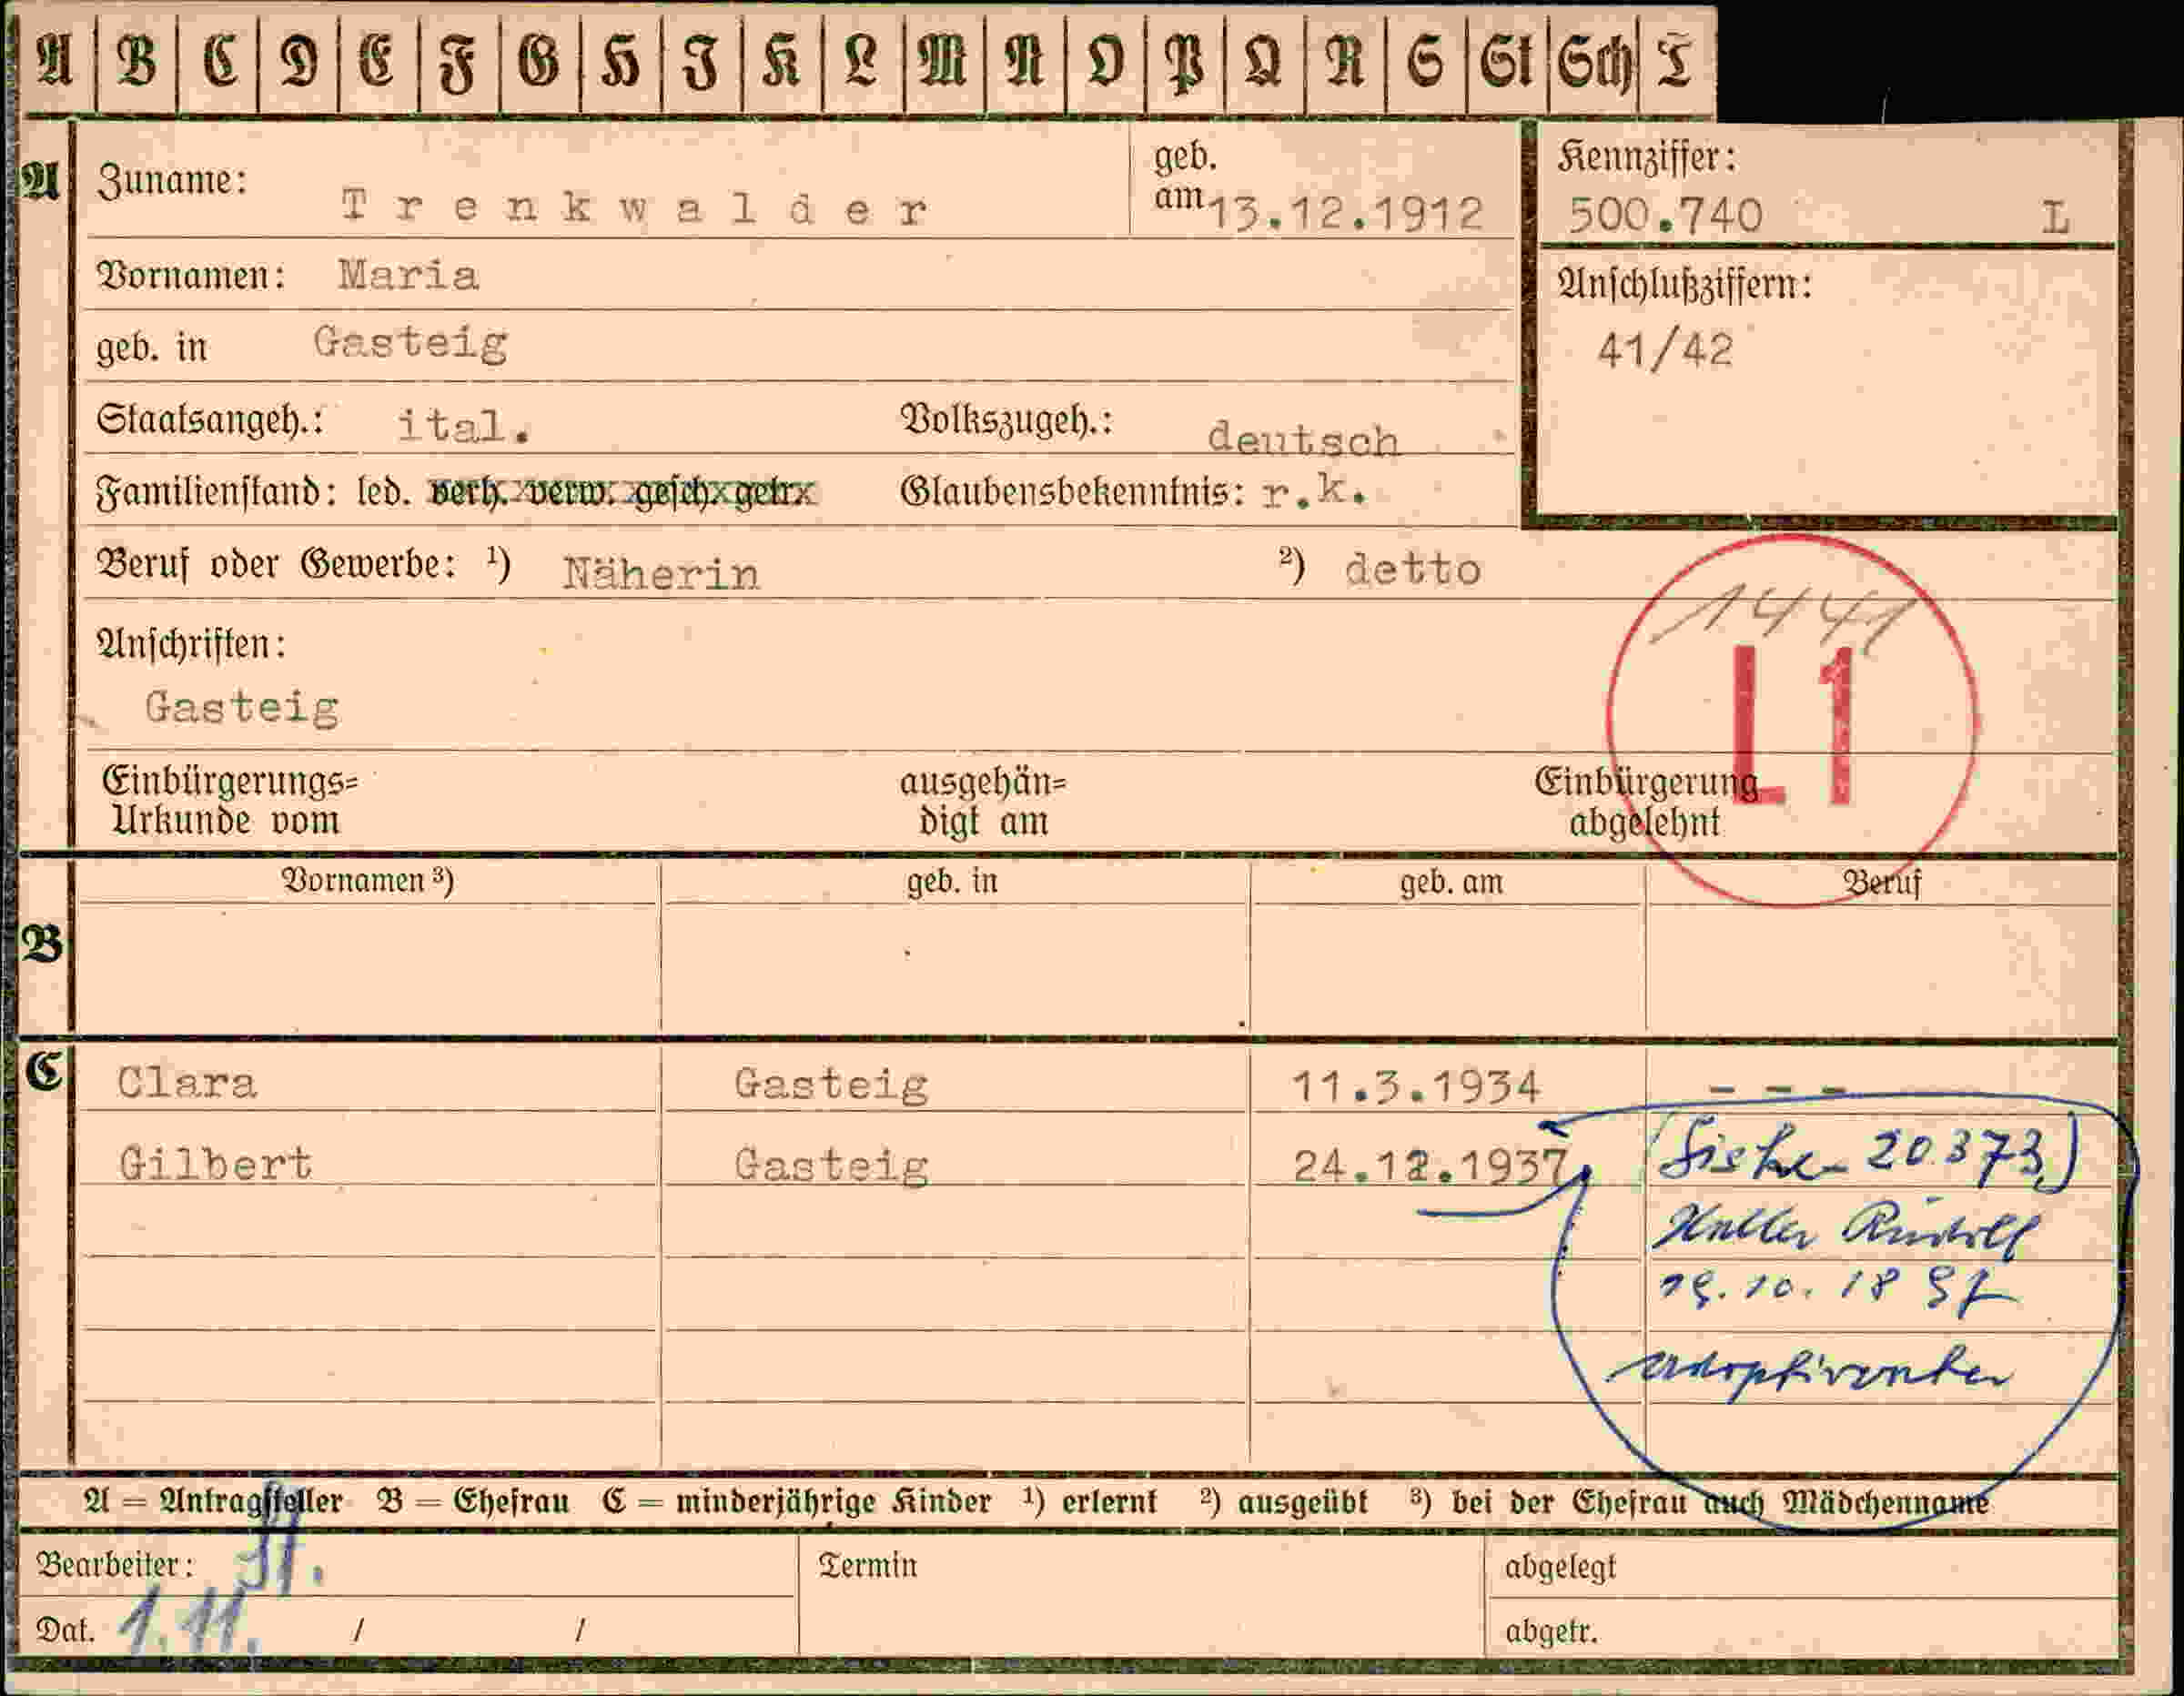 A B C D E F G H I K L M N O P Q R S St Sch T
A Zuname: Trenkwalder geb. am 13.12.1912 Kennziffer: 500.740 L
Vornamen: Maria Anschlußziffern:
geb. in Gasteig 41/42
Staatsangeh.: ital. Volkszugeh.: deutsch
Familienstand: led. verh. verw. gesch. getr. Glaubensbekenntnis: r.k.
Beruf oder Gewerbe: ¹) Näherin ²) detto
1441
Anschriften: L1
Gasteig
Einbürgerungs= ausgehän= Einbürgerung
Urkunde vom digt am abgelehnt
Vornamen ³) geb. in geb. am Beruf
B
C Clara Gasteig 11.3.1934 - - -
Gilbert Gasteig 24.12.1937 20.373)
Rudolf
19.10.18
Adoptivvater
A = Antragsteller B = Ehefrau C = minderjährige Kinder ¹) erlernt ²) ausgeübt ³) bei der Ehefrau auch Mädchenname
Bearbeiter: Termin abgelegt
Dat. 1.11. / / abgetr.